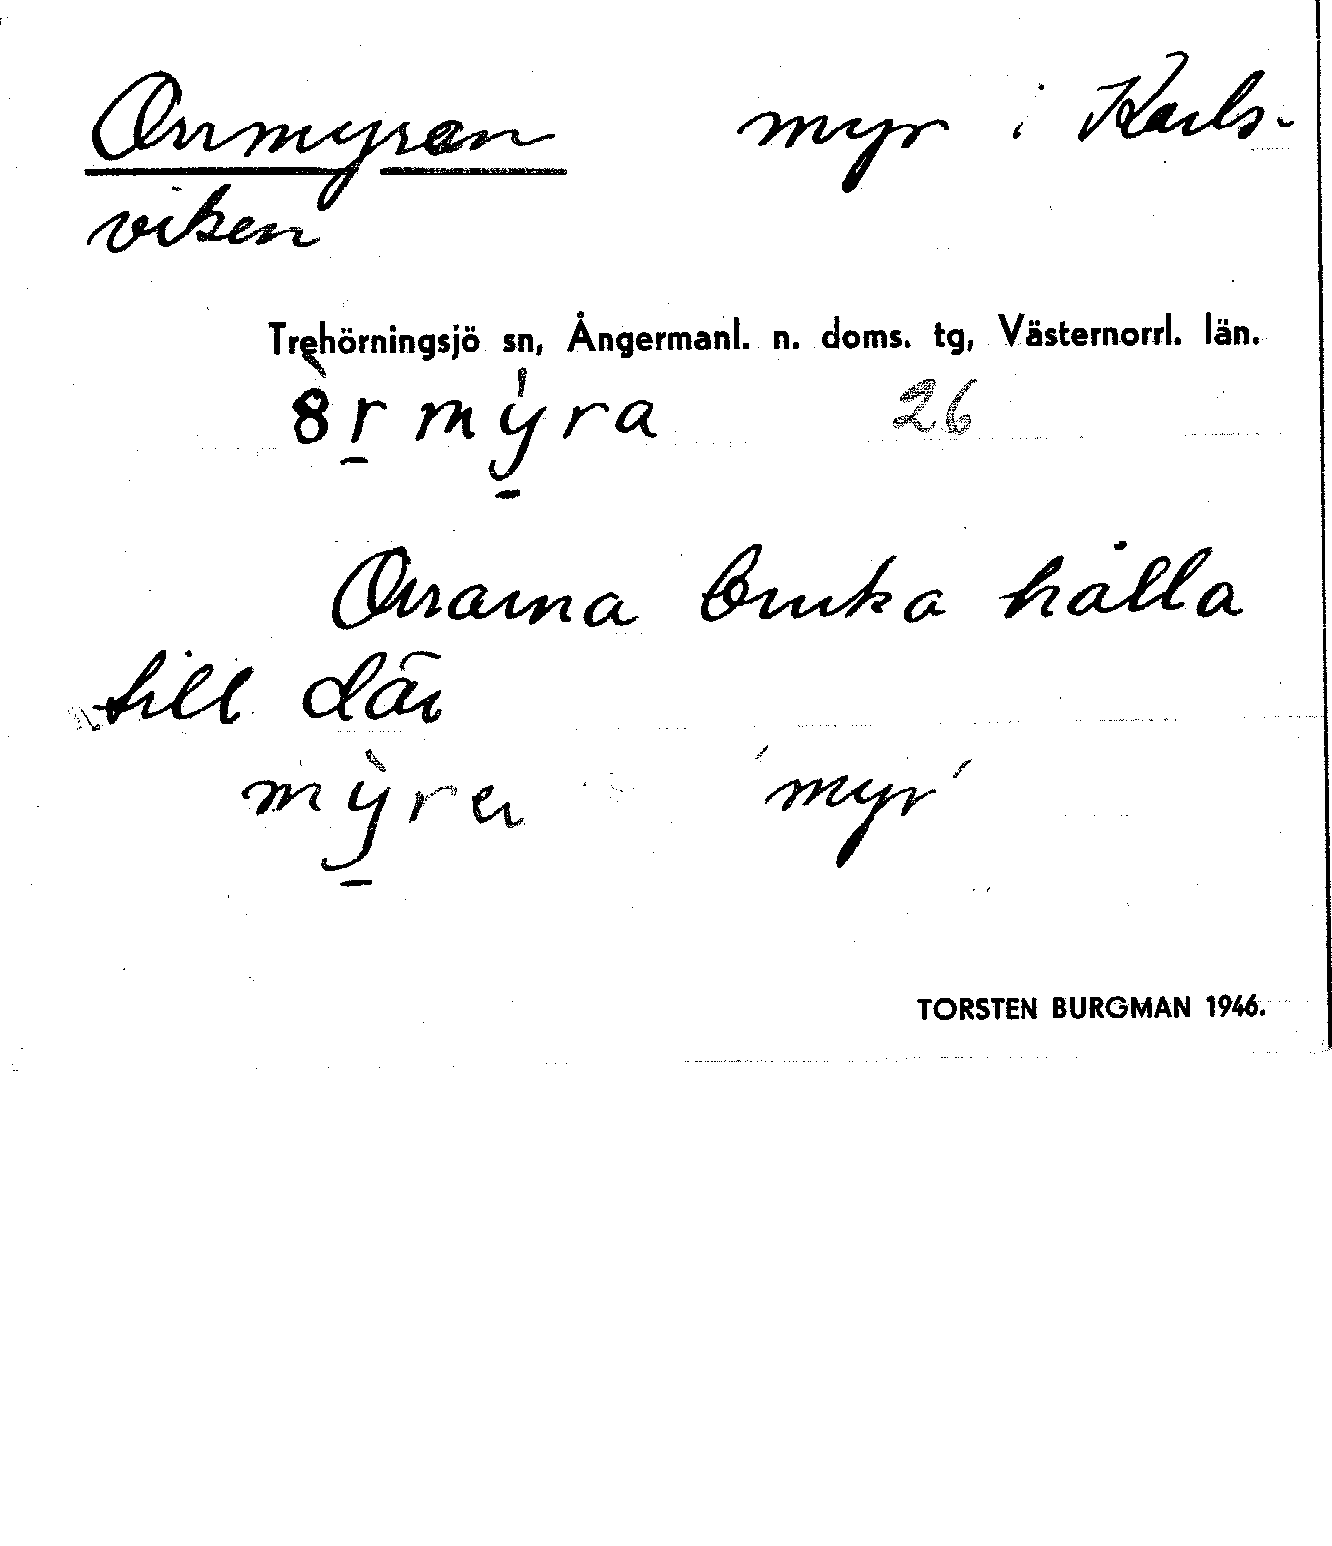 Orrmyran myr i Karls-
viken
Trehörningsjö sn, Ångermanl. n. doms. tg, Västernorrl. län.
8̀r̠mý̠ra 26
Orrarna bruka hålla
till där
mỳ̠rer 'myr'
TORSTEN BURGMAN 1946.